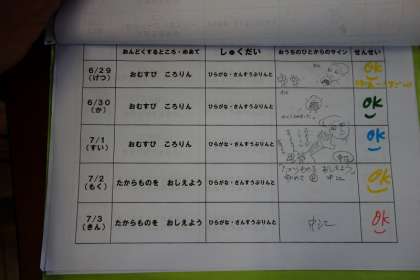 おんどくするところ・めあて しゅくだい おうちのひとからのサイン せんせい
6/29 おむすび ころりん ひらがな・さんすうぷりんと OK
(げつ)
6/30 おむすび ころりん ひらがな・さんすうぷりんと OK
(か)
7/1 おむすび ころりん ひらがな・さんすうぷりんと OK
(すい)
7/2 たからものを おしえよう ひらがな・さんすうぷりんと OK
(もく)
7/3 たからものを おしえよう ひらがな・さんすうぷりんと OK
(きん)